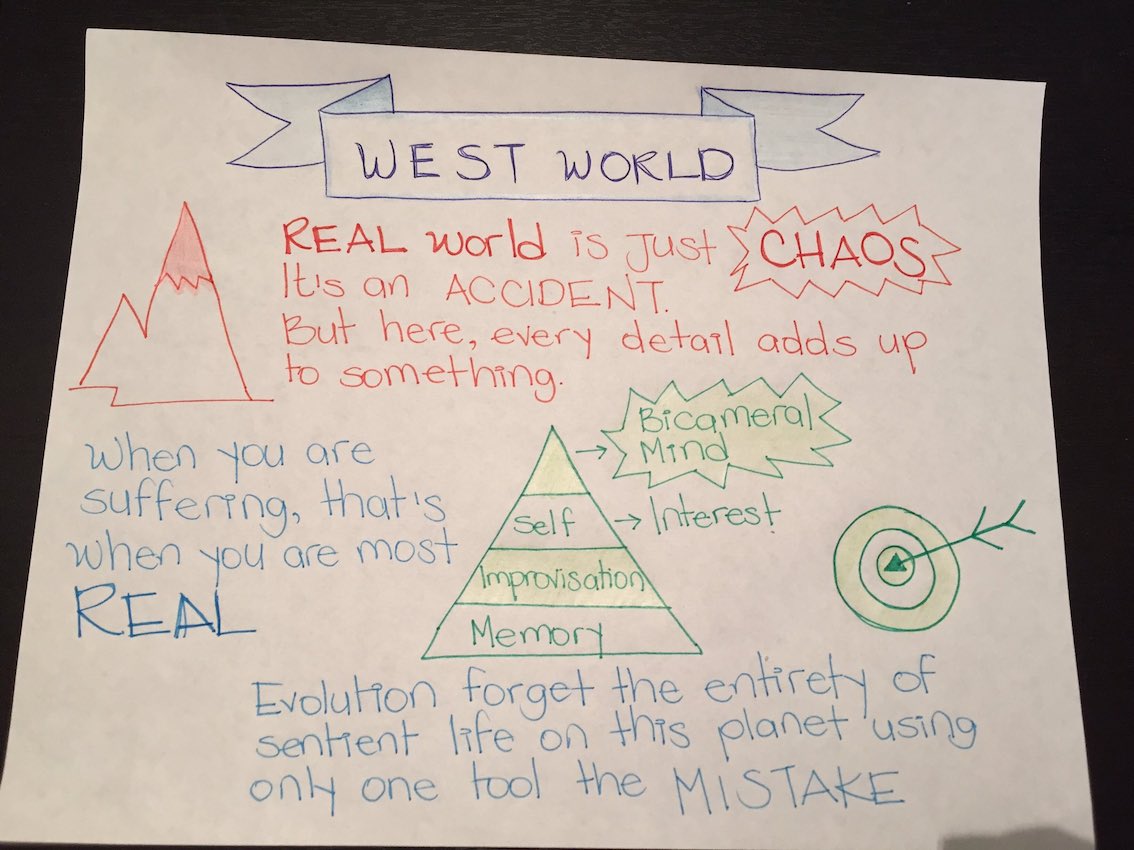 WEST WORLD
REAL world is just CHAOS
It's an ACCIDENT.
But here, every detail adds up
to something.
When you are
suffering, that's
when you are most
REAL
Bicameral
Mind
Self → Interest
Improvisation
Memory
Evolution forget the entirety of
sentient life on this planet using
only one tool the MISTAKE